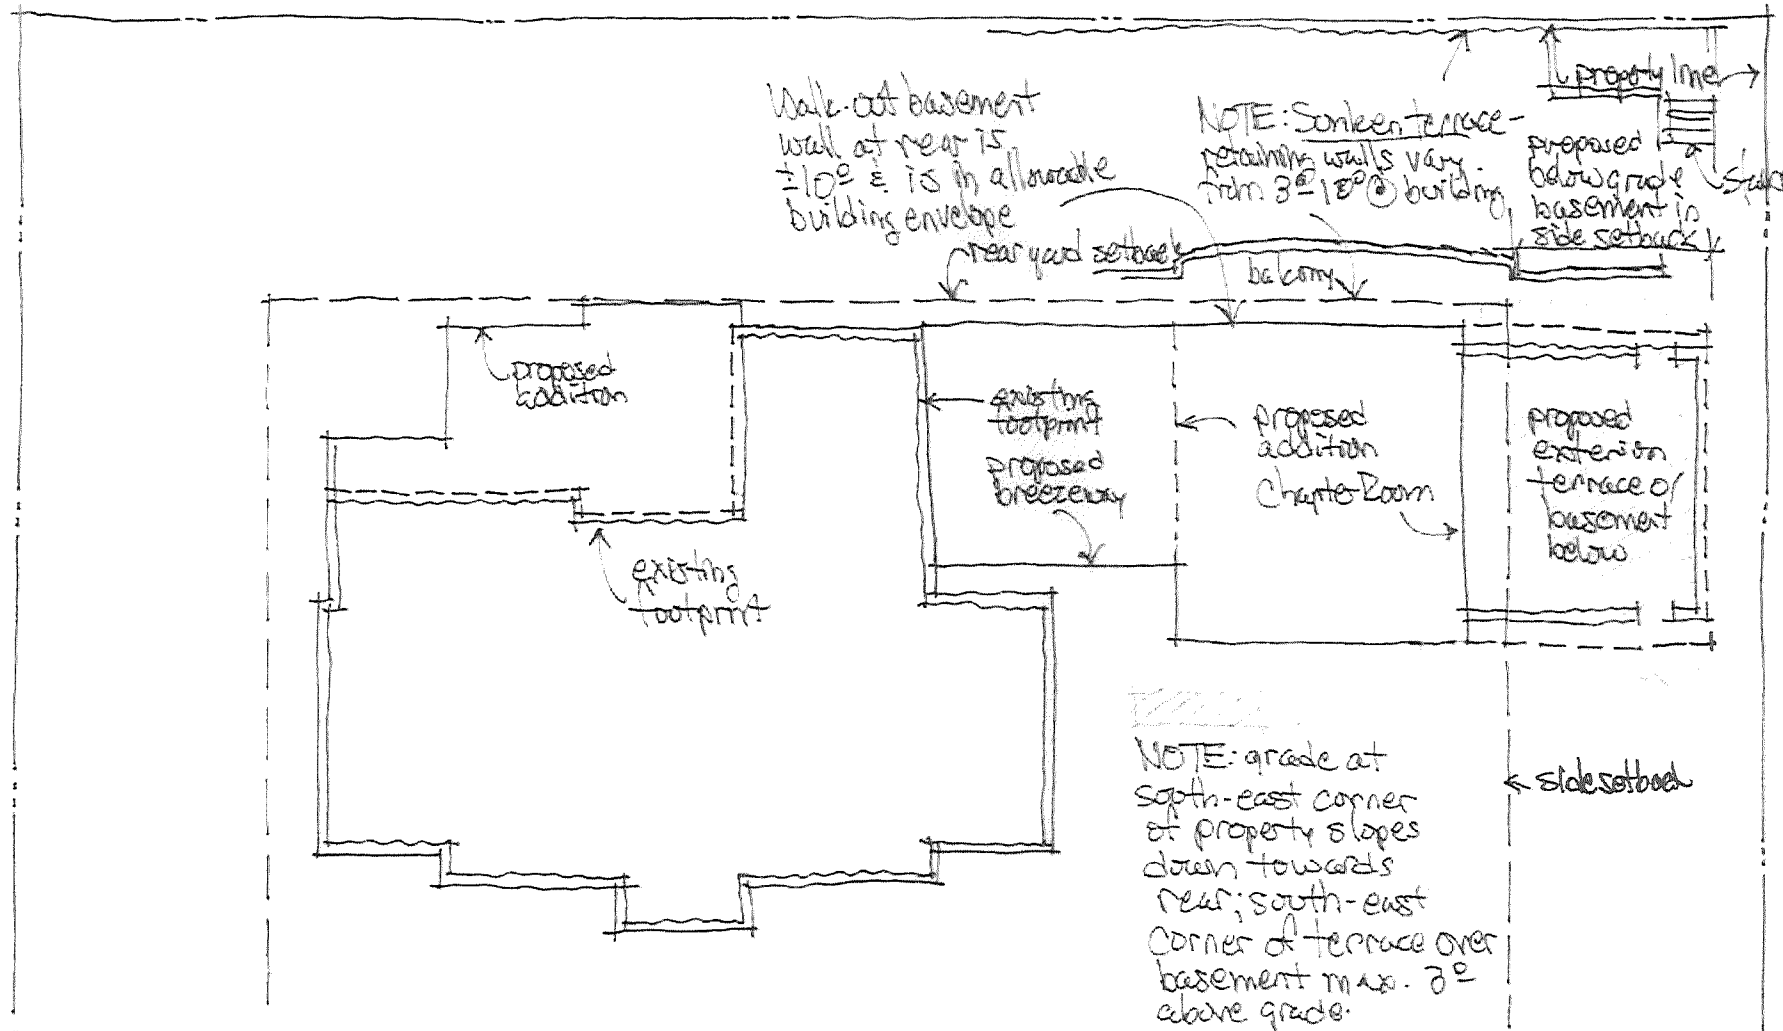 Walk-out basement
wall at rear is
±10º & is in allowable
building envelope
NOTE: Sunken terrace -
retaining walls vary
from 3º-10º @ building
property line
stairs
proposed
below grade
basement in
side setback
rear yard setback
balcony
proposed
addition
existing
footprint
proposed
breezeway
proposed
addition
Chapter Room
proposed
exterior
terrace o/
basement
below
existing
footprint
side setback
NOTE: grade at
south-east corner
of property slopes
down towards
rear; south-east
corner of terrace over
basement max. 3º
above grade.